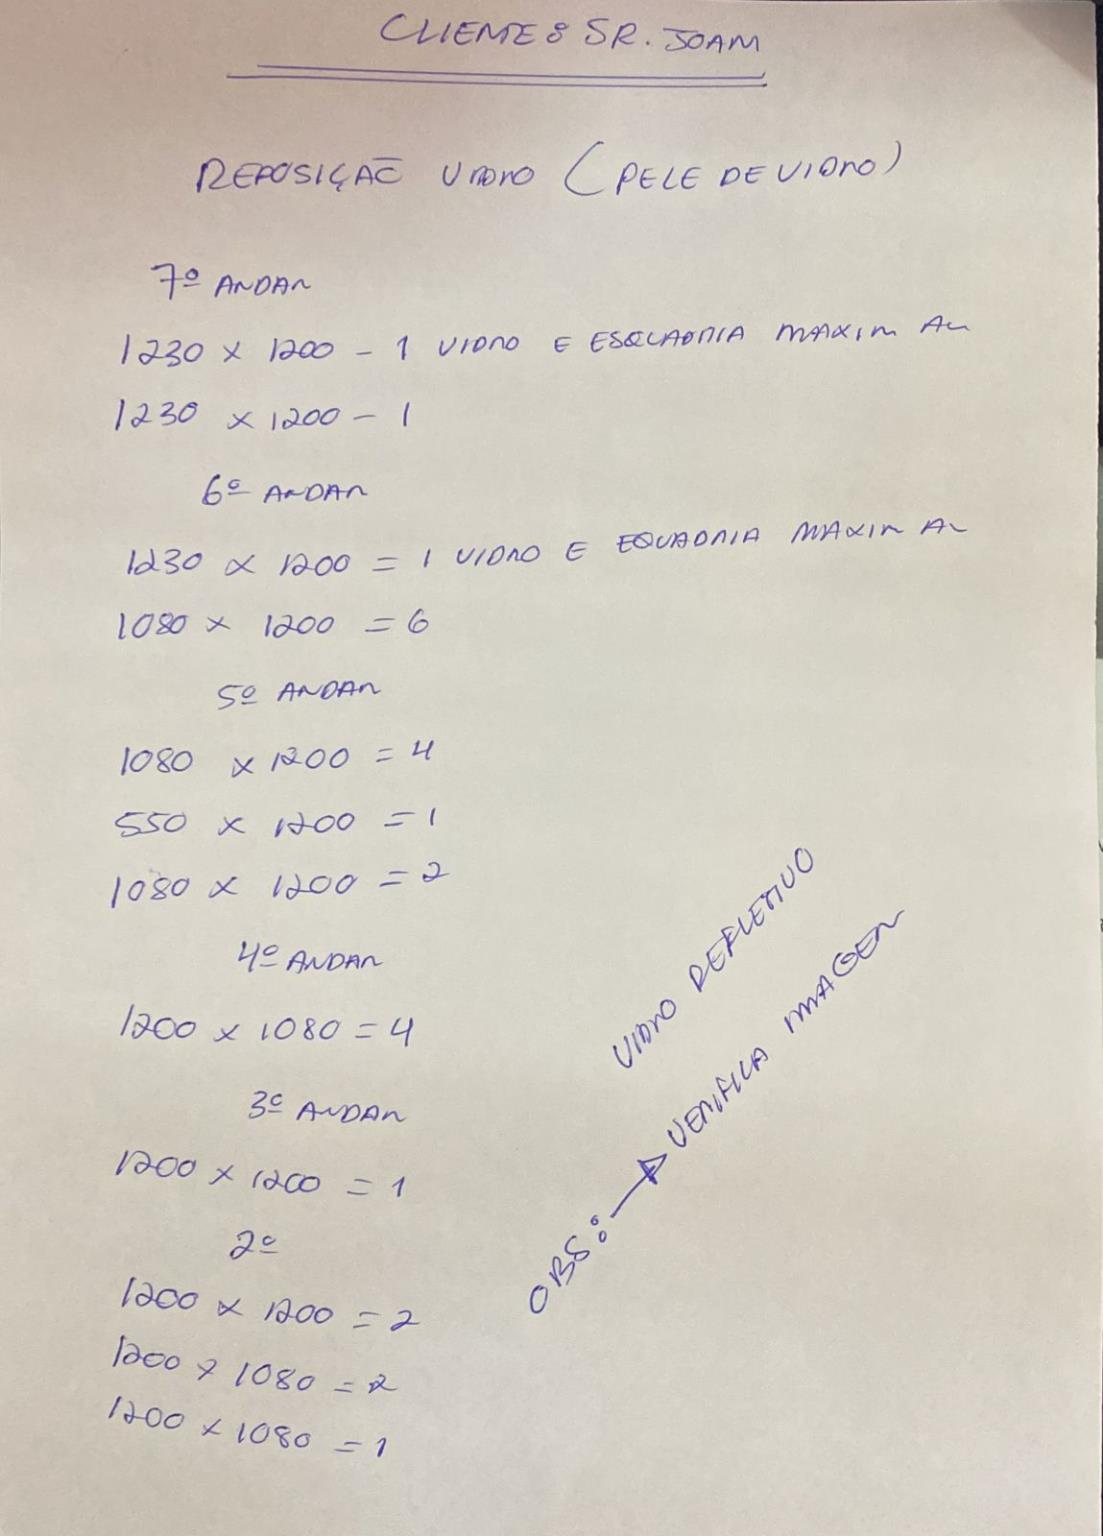 CLIENTE: SR. JOAM
REPOSIÇAO VIDRO (PELE DE VIDRO)
7º ANDAR
1230 x 1200 - 1 VIDRO E ESQUADRIA MAXIM AR
1230 x 1200 - 1
6º ANDAR
1230 x 1200 = 1 VIDRO E EQUADRIA MAXIM AR
1080 x 1200 = 6
5º ANDAR
1080 x 1200 = 4
550 x 1200 = 1
1080 x 1200 = 2
4º ANDAR
1200 x 1080 = 4
3º ANDAR
1200 x 1200 = 1
2º
1200 x 1200 = 2
1200 x 1080 = 2
1200 x 1080 = 1
VIDRO REFLETIVO
OBS: → VERIFICA IMAGEM